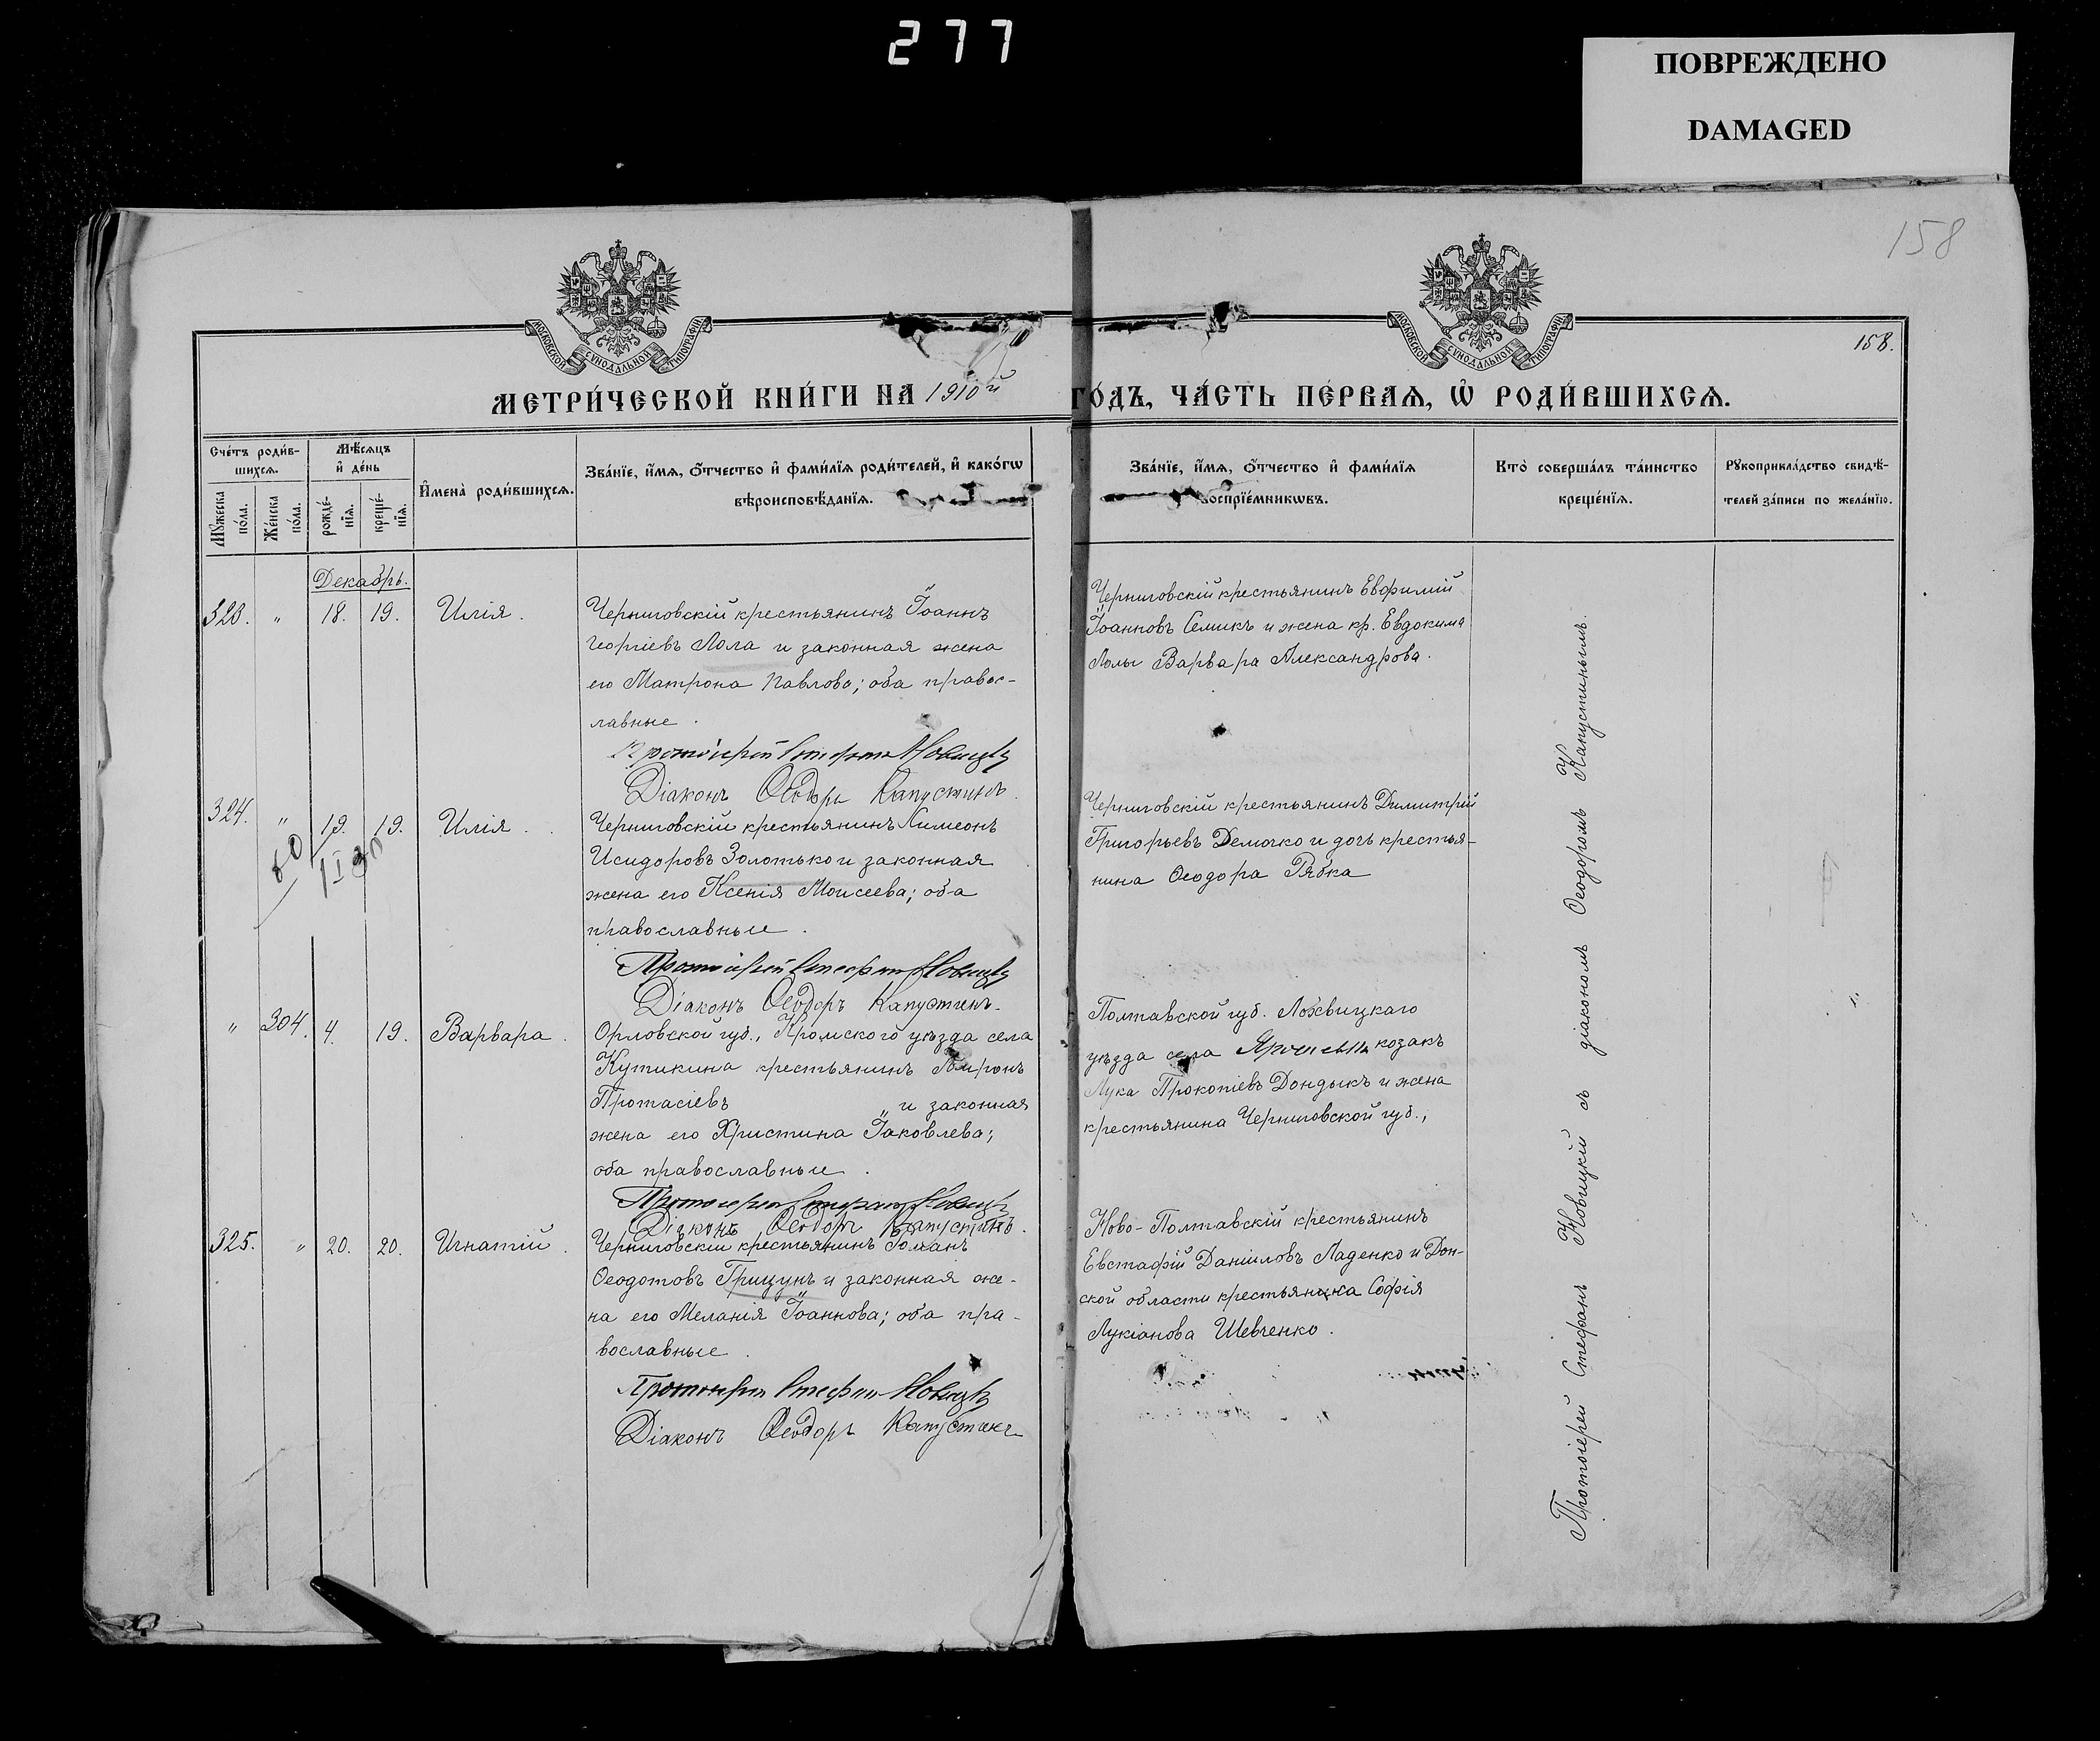 277
ПОВРЕЖДЕНО
DAMAGED
158
МОСКОВСКОЙ СѴНОДАЛЬНОЙ ТИПОГРАФІИ.
МОСКОВСКОЙ СѴНОДАЛЬНОЙ ТИПОГРАФІИ.
158.
МЕТРИ́ЧЕСКОЙ КНИ́ГИ НА 1910й
ГО́ДЪ, ЧА́СТЬ ПЕ́РВАѦ, Ѡ҆ РОДИ́ВШИХСѦ.
Сче́тъ роди́в-
шихсѧ.
Мꙋ́жеска
по́ла.
Же́нска
по́ла.
Мѣ́сѧцъ
и҆ де́нь
рожде́-
нїѧ.
креще́-
нїѧ.
И҆мена̀ роди́вшихсѧ.
Зва́нїе, и҆́мѧ, ѻ҆́тчество и҆ фами́лїѧ роди́телей, и҆ како́гѡ
вѣроисповѣ́данїѧ.
Зва́нїе, и҆́мѧ, ѻ҆́тчество и҆ фами́лїѧ
воспрїе́мникѡвъ.
Кто̀ соверша́лъ та́инство
креще́нїѧ.
Рꙋкоприкла́дство свидѣ́-
телей за́писи по жела́нїю.
Декабрь.
323. " 18. 19. Илія.
Черниговскій крестьянинъ Іоаннъ
Георгіевъ Лола и законная жена
его Матрона Павлова; оба правос-
лавные.
Протоіерей Стефанъ Новицкій
Діаконъ Ѳеодоръ Капустинъ.
Черниговскій крестьянинъ Евфимій
Іоанновъ Семикъ и жена кр. Евдокима
Лолы Варвара Александрова.
324. " 19. 19. Илія.
Черниговскій крестьянинъ Симеонъ
Исидоровъ Золотько и законная
жена его Ксенія Моисеева; оба
православные.
Протоіерей Стефанъ Новицкій
Діаконъ Ѳеодоръ Капустинъ.
Черниговскій крестьянинъ Димитрій
Григорьевъ Демочко и дочь крестья-
нина Ѳеодора Рябка
" 304. 4. 19. Варвара.
Орловской губ., Кромского уѣзда села
Кутикина крестьянинъ Миронъ
Протасіевъ " и законная
жена его Христина Іаковлева;
оба православные.
Протоіерей Стефанъ Новицкій
Діаконъ Ѳеодоръ Капустинъ.
Полтавской губ. Лохвицкаго
уѣзда села козакъ
Лука Прокопіевъ Дондыкъ и жена
крестьянина Черниговской губ.,
"
325. " 20. 20. Игнатій.
Черниговскій крестьянинъ Романъ
Ѳеодотовъ Грицунъ и законная же-
на его Меланія Іоаннова; оба пра-
вославные.
Протоіерей Стефанъ Новицкій
Діаконъ Ѳеодоръ Капустинъ
Ново-Полтавскій крестьянинъ
Евстафій Даніиловъ Ладенко и Дон-
ской области крестьянка Софія
Лукіанова Шевченко.
Протоіерей Стефанъ Новицкій съ діакономъ Ѳеодоромъ Капустинымъ.